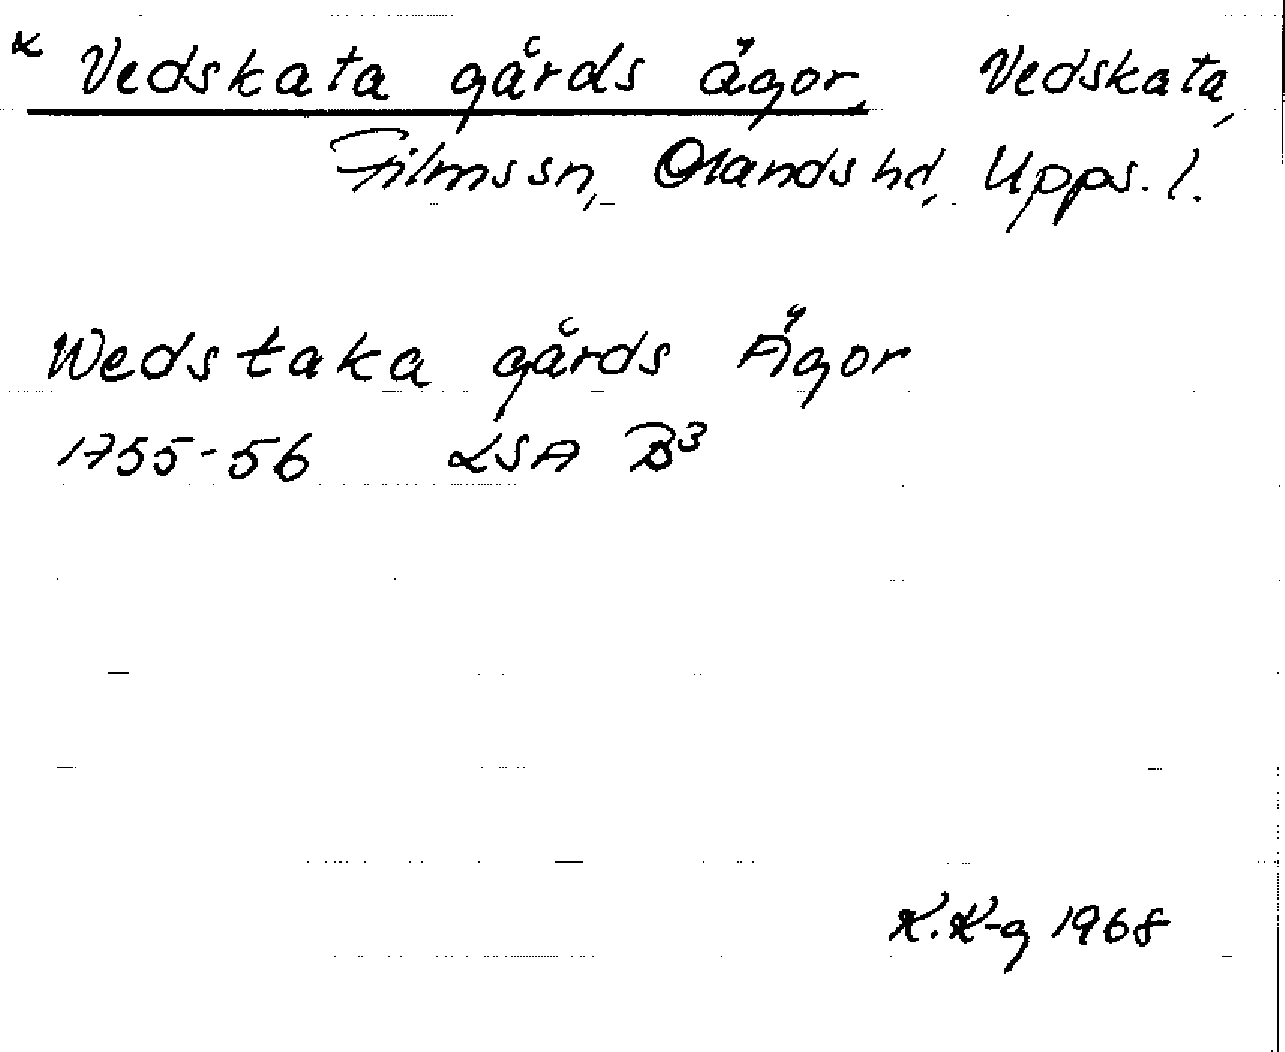 x Vedskata gårds ägor, Vedskata,
Films sn, Olands hd, Upps. l.
Wedstaka gårds Ägor
1755-56 LSA B³
K.K-g 1968